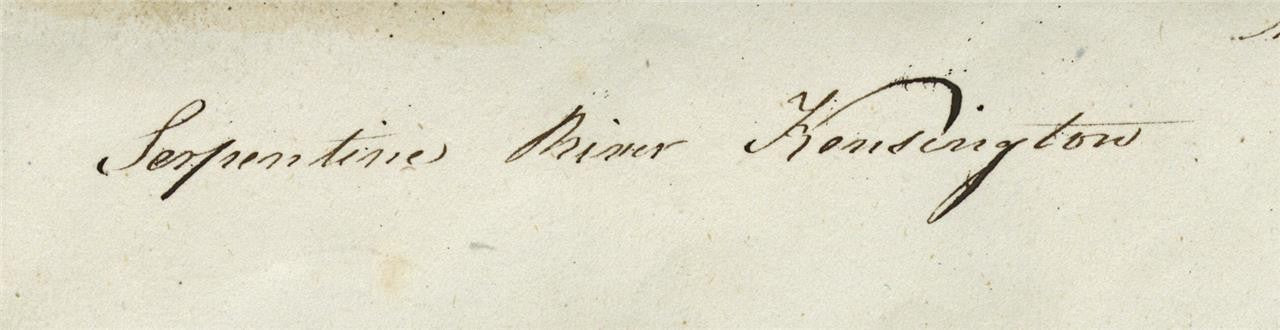 Serpentine River Kensington